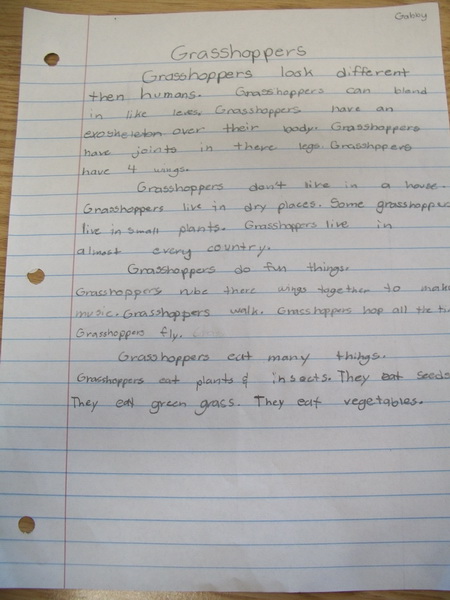 Gabby
Grasshoppers
Grasshoppers look different
then humans. Grasshoppers can blend
in like leves. Grasshoppers have an
exoskeleton over their body. Grasshoppers
have joints in there legs. Grasshppers
have 4 wings.
Grasshoppers don't live in a house.
Grasshoppers live in dry places. Some grasshoppe
live in small plants. Grasshoppers live in
almost every country.
Grasshoppers do fun things.
Grasshoppers rube there wings together to mak
music. Grasshoppers walk. Grasshoppers hop all the
Grasshoppers fly.
Grasshoppers eat many things.
Grasshoppers eat plants & insects. They eat seeds
They eat green grass. They eat vegetables.